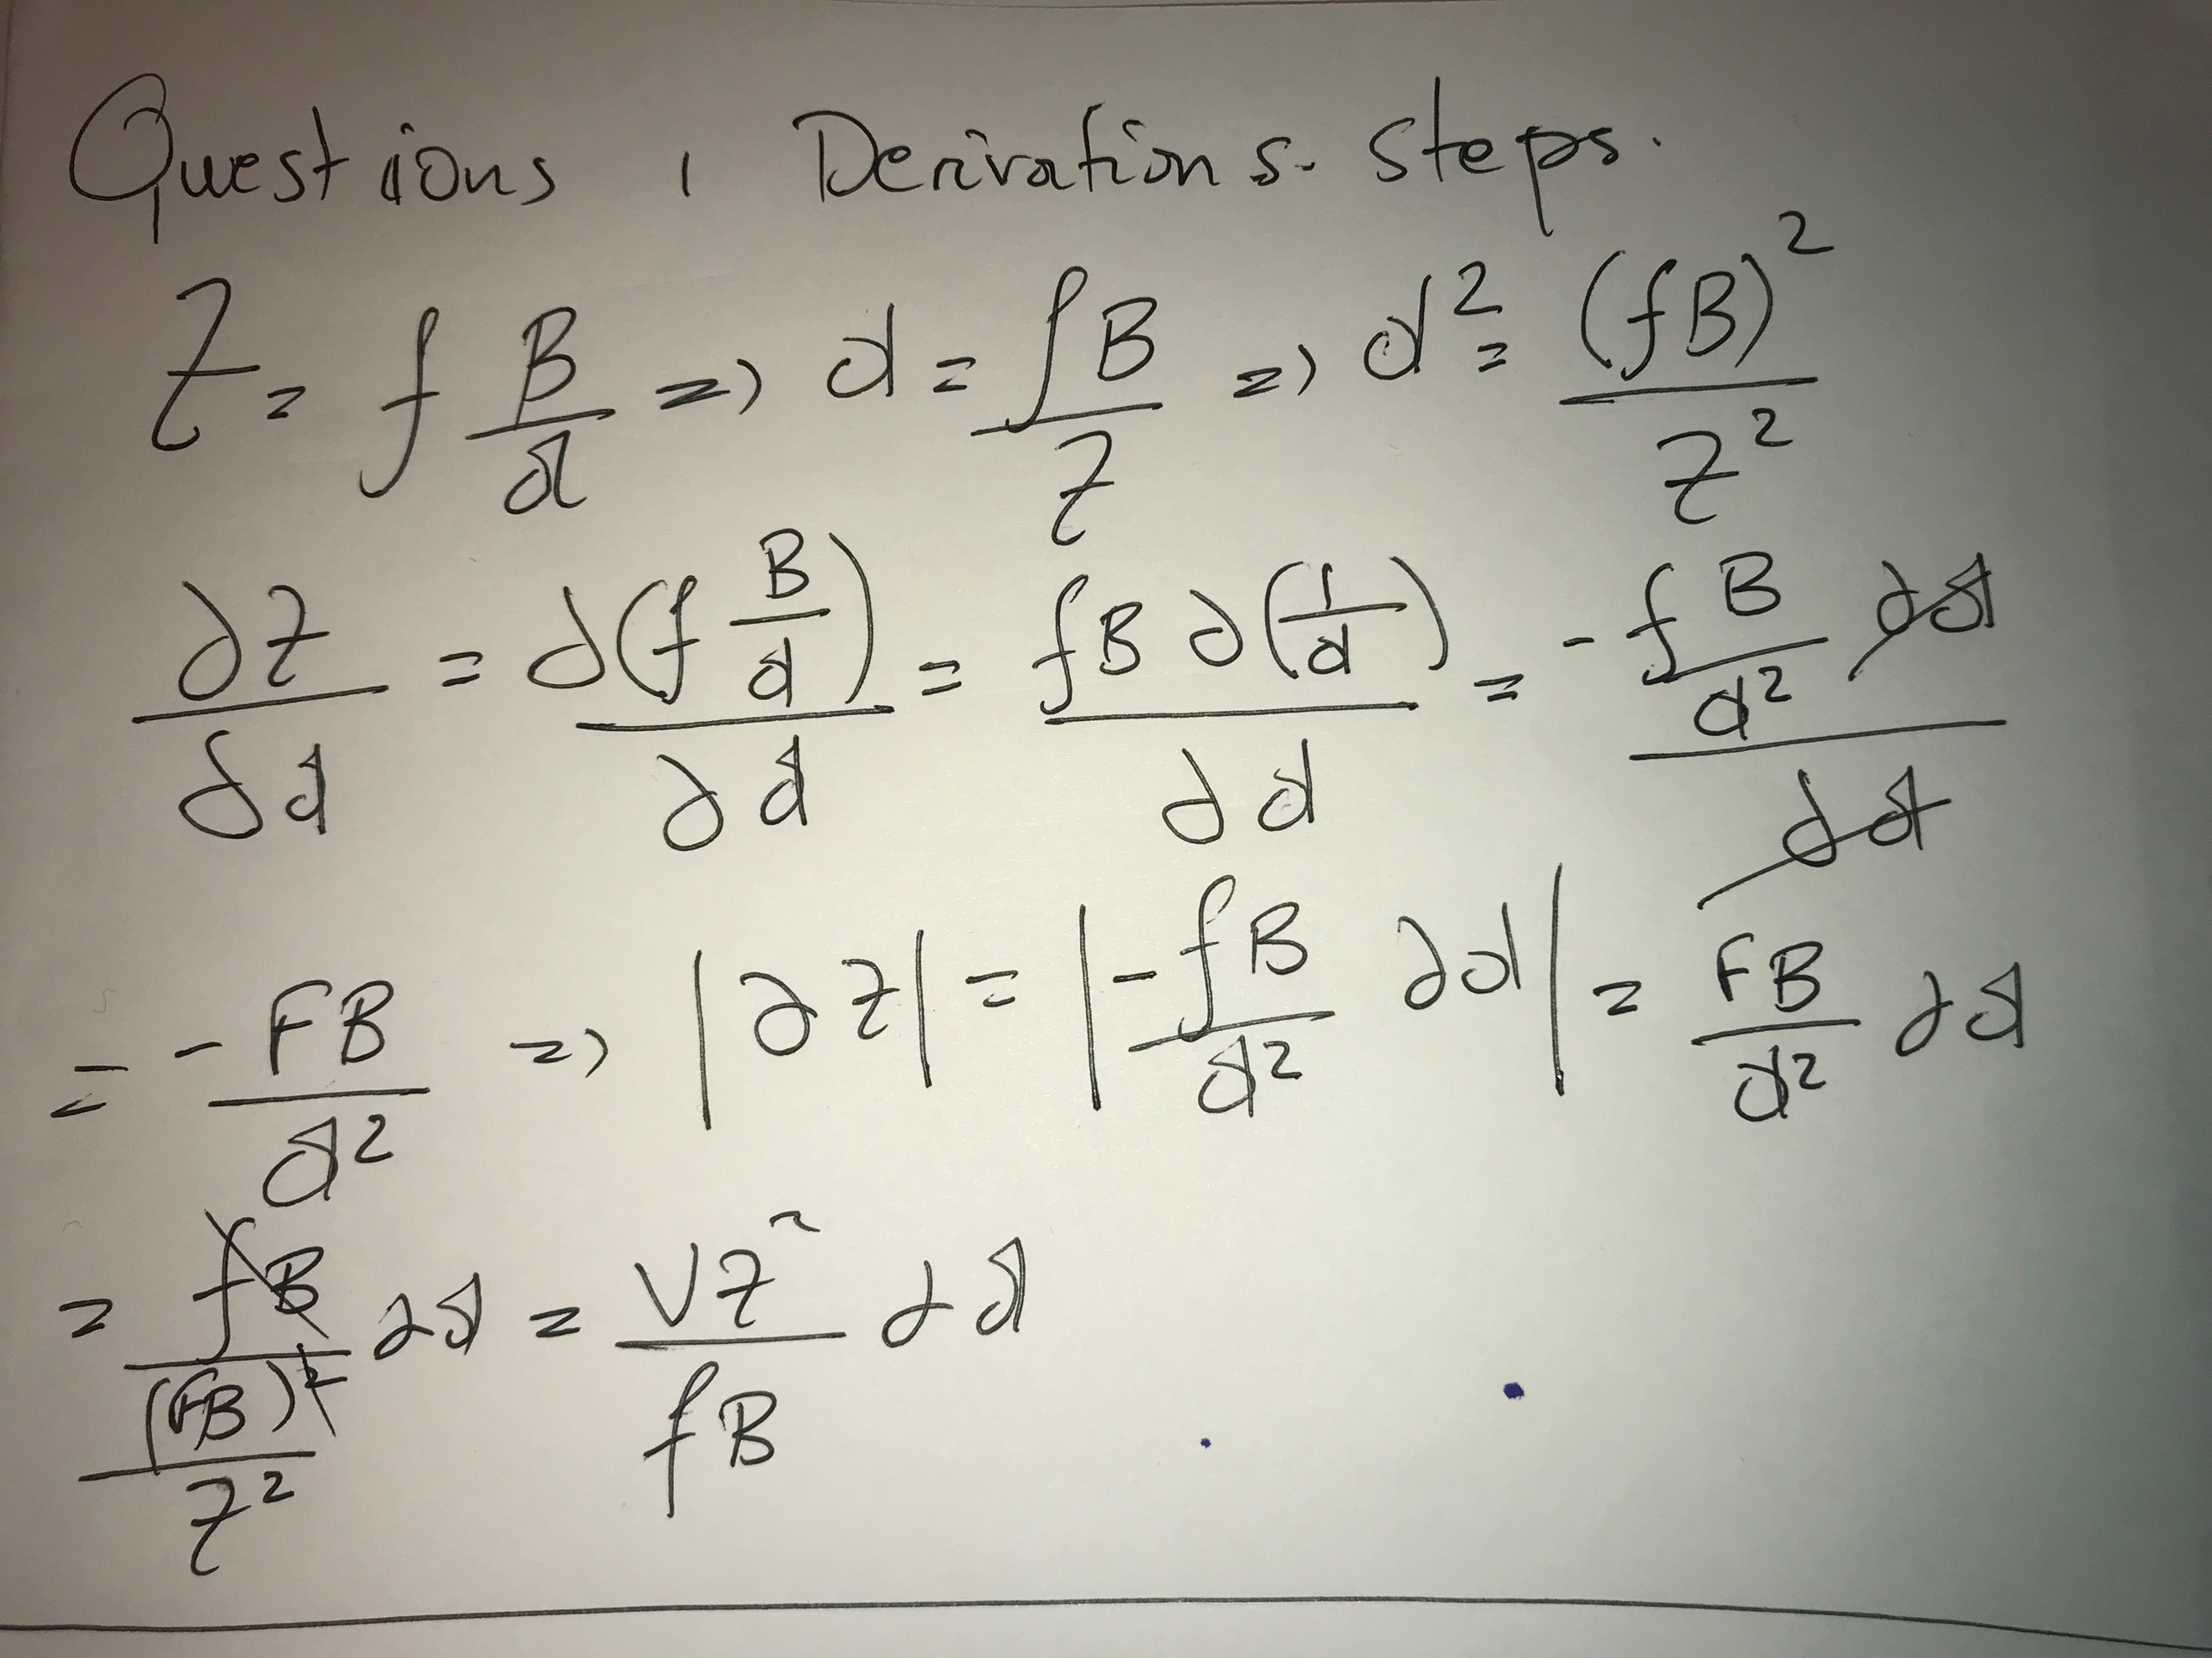 Questions 1 Derivations. steps.
Z = f B/d => d = fB/Z => d² = (fB)²/Z²
∂Z/∂d = ∂(f B/d)/∂d = fB ∂(1/d)/∂d = -f B/d² ∂d/∂d
= -FB/d² => |∂Z| = |-fB/d² ∂d| = FB/d² ∂d
= fB/((FB)²/Z²) ∂d = VZ²/fB ∂d